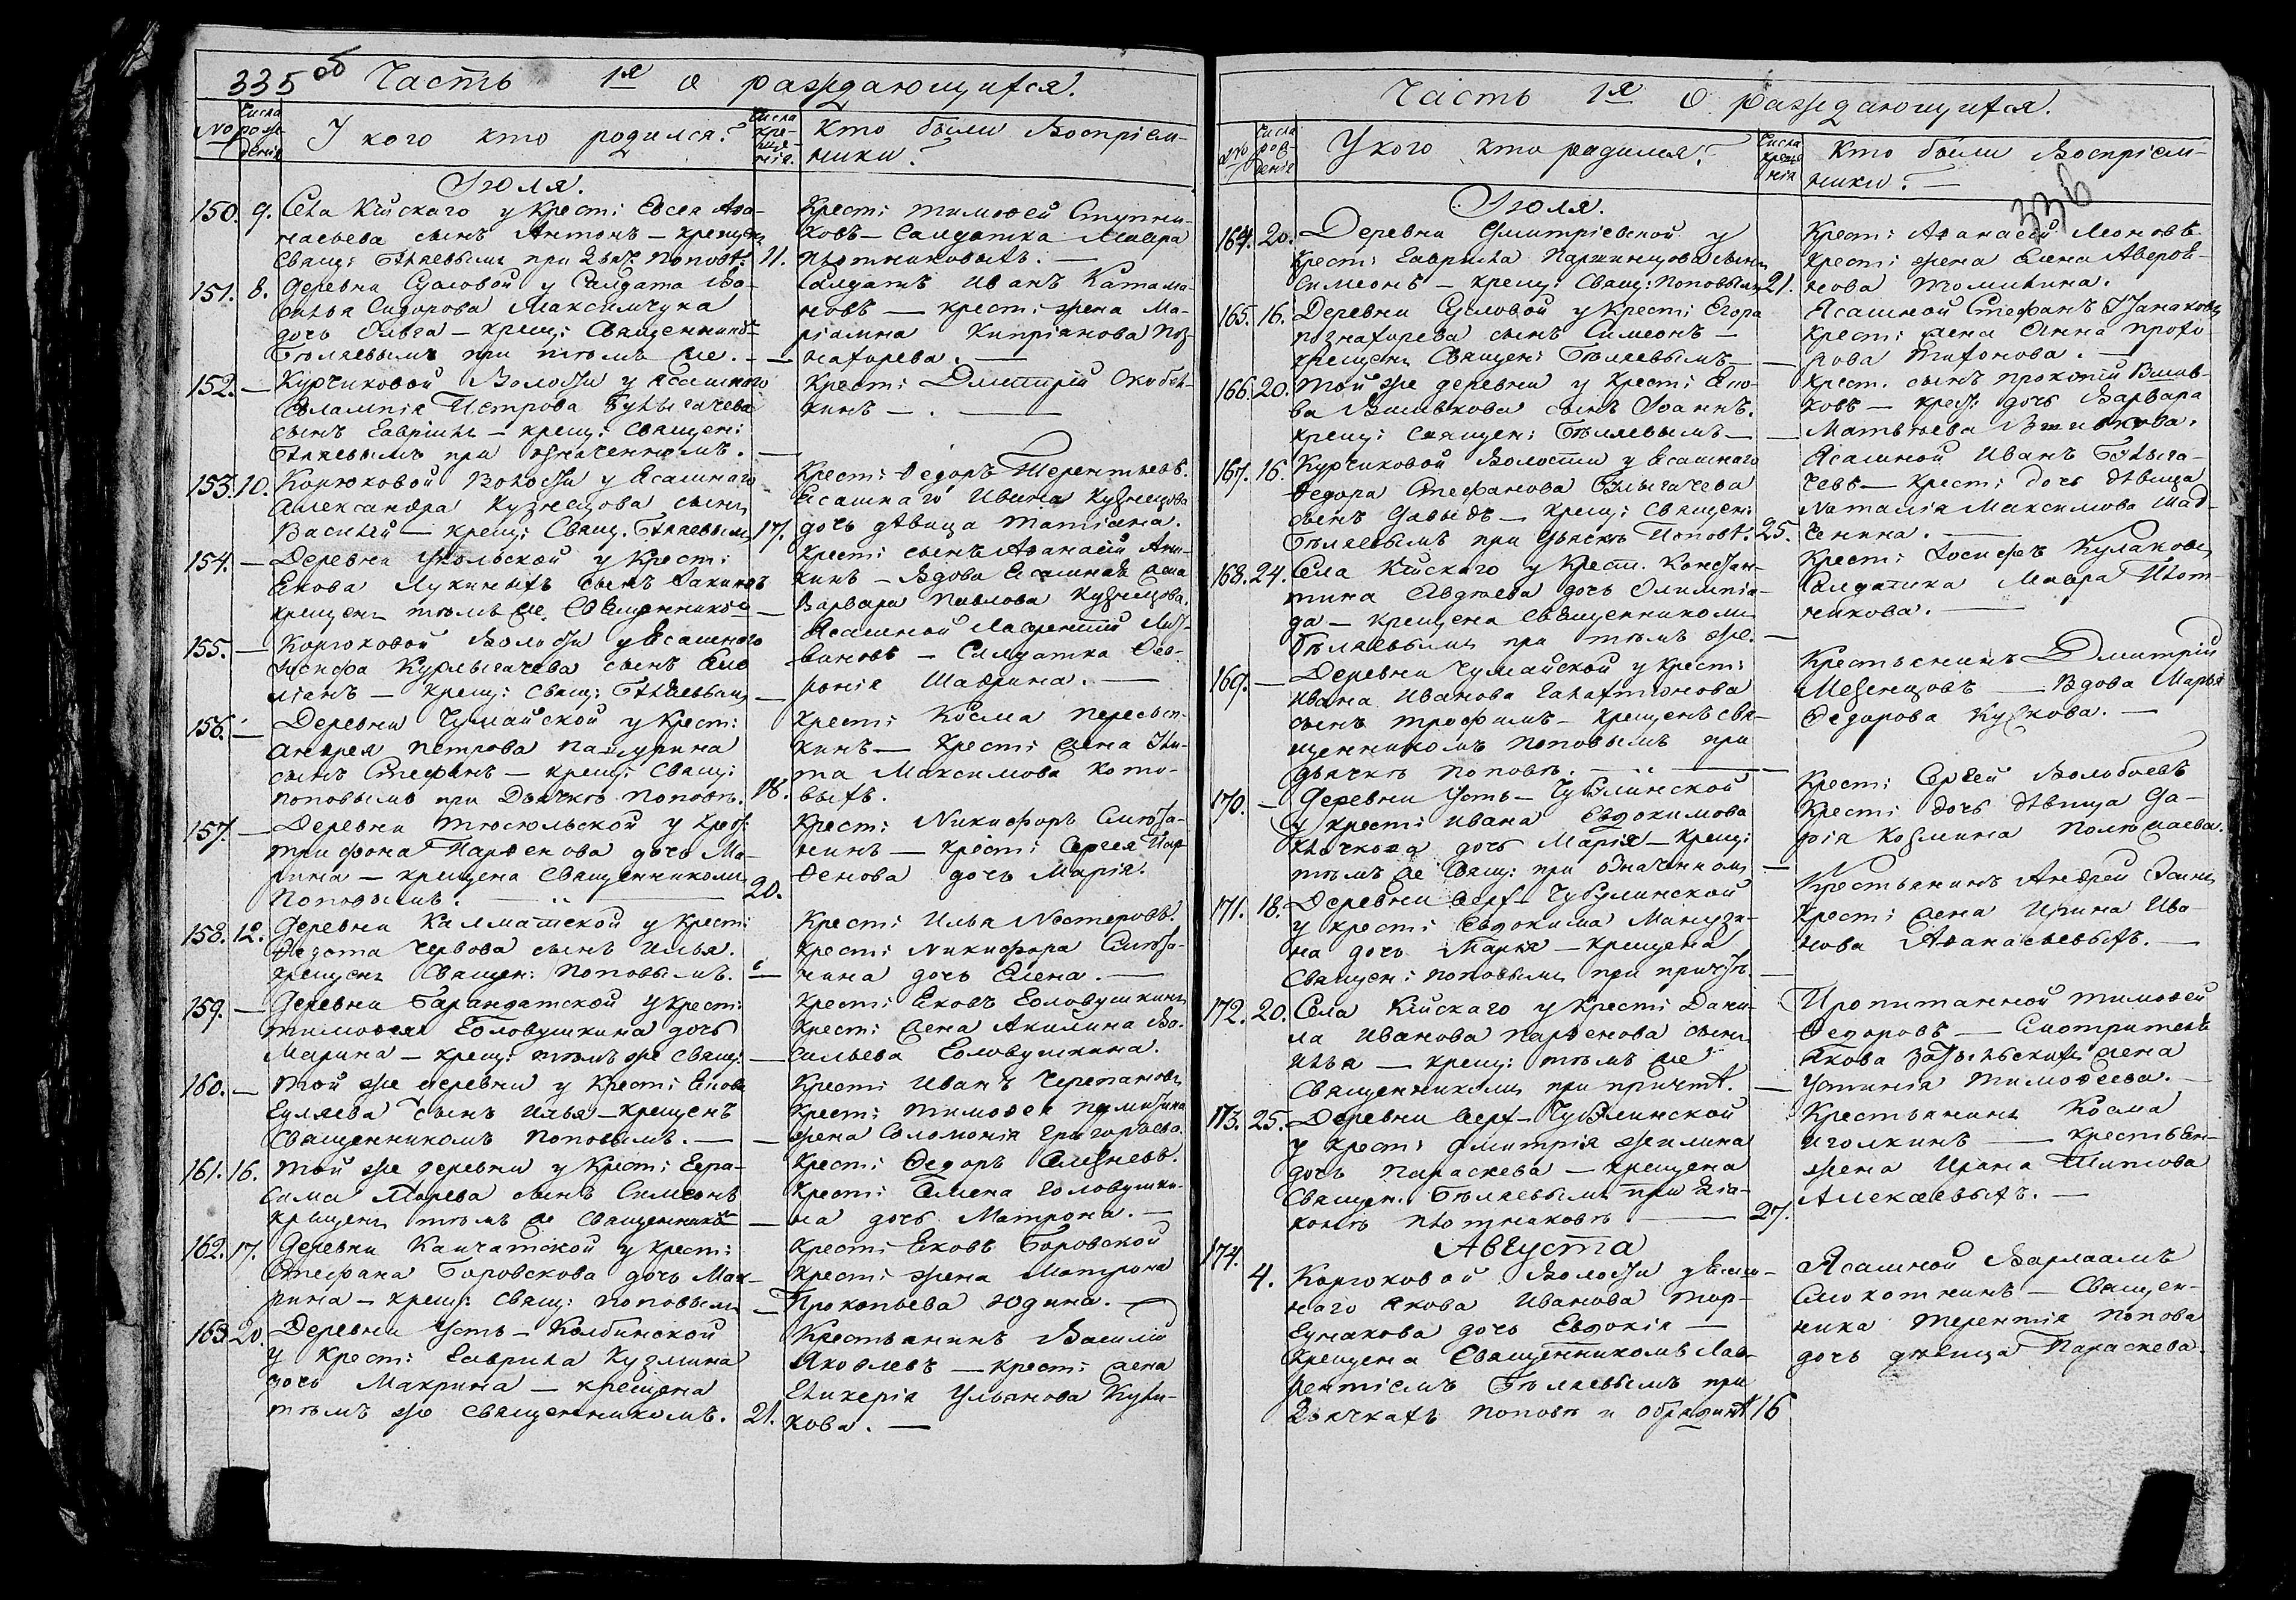 335 об Часть 1я о раждающихся.
№ Числа рожденія
У кого кто родился?
Числа крещенія.
Кто были Воспріем-
ники?
Іюля.
150. 9. Села Кійскаго у Крест: Евсея Афа-
насьева сынъ Антонъ – крещенъ
Свящ: Бѣляевымъ при Дьяч: Поповѣ. 11.
Крест: Тимофей Ступни-
ковъ – Салдатка Мавра
Плотниковыхъ. –
151. 8. Деревни Сусловой у Салдата Ва-
силья Сидорова Максимчука
дочь Ольга – крещ: Священникомъ
Бѣляевымъ при томъ же. –
Салдатъ Иванъ Катама-
новъ – крест: жена Ма-
ріамна Кипріанова Поз-
нахорева. –
152. – Курчиковой Волости у Ясашнаго
Евлампія Петрова Булыгачева
сынъ Гавріилъ – крещ: Священ:
Бѣляевымъ при означенномъ. –
Крест: Дмитрій Окобол-
кинъ – . –
153. 10. Корюковой Волости у Ясашнаго
Александра Кузнецова сынъ
Василій – крещ: Свящ. Бѣляевымъ 17.
Крест: Федоръ Терентьевъ.
Ясашнаго Ивана Кузнецова
дочь дѣвица Татіана.
154. – Деревни у Крест:
Екова Лукиныхъ сынъ Іакинфъ
крещенъ тѣмъ же Священникомъ –
Крест: сынъ Афанасій Ани-
кинъ – Вдова Ясашная жена
Варвара Павлова Кузнецова.
155. – Корюковой Волости у Ясашнаго
Іосифа Курлыгачева сынъ Еми
ліанъ – крещ: Свящ: Бѣляевымъ –
Ясашной Лаврентій Лит-
виновъ – Салдатка Фев-
ронія Шаврина. –
156. – Деревни Чумайской у Крест:
Андрея Петрова Пашурина
сынъ Стефанъ – крещ: Свящ:
Поповымъ при Дьячкѣ Поповѣ. 18.
Крест: Косма Пересып-
кинъ – Крест: жена Ули-
та Максимова Кото-
выхъ.
157. – Деревни Тюсюльской у Крест:
Трифона Парфенова дочь Ма-
рина – крещена Священникомъ
Поповымъ. – 20.
Крест: Никифоръ Сиюта-
нинъ – Крест: Сергея Пар-
фенова дочь Марія.
158. 12. Деревни Калматской у Крест:
Федота Червова сынъ Илья.
крещенъ Священ: Поповымъ. –
Крест: Илья Нестеровъ.
Крест: Никифора Сиюта-
нина дочь Елена. –
159. – Деревни Барандатской у Крест:
Тимофея Головушкина дочь
Марина – крещ: тѣмъ же Свящ: –
Крест: Яковъ Головушкинъ
Крест: жена Акилина Ва-
сильева Головушкина.
160. – Той же деревни у Крест: Якова
Гуляева сынъ Илья – крещенъ
Священникомъ Поповымъ. –
Крест: Иванъ Черепановъ
Крест: Тимофея
жена Соломонія Григорьева
161. 16. Той же деревни у Крест: Гера-
сима сынъ Симеонъ
крещенъ тѣмъ же Священникомъ –
Крест: Федоръ Селезневъ.
Крест: Семена Головушки-
на дочь Матрона. –
162. 17. Деревни Камчатской у Крест:
Стефана Боровскова дочь Мак-
рина – крещ: Свящ: Поповымъ –
Крест: Яковъ Боровской
Крест: жена Матрона
Прокопьева Юдина. –
163. 20. Деревни Усть-Колбинской
у Крест: Гаврила Кузмина
дочь Макрина – крещена
тѣмъ же Священникомъ. 21.
Крестьянинъ Василій
Яковлевъ – Крест: жена
Гликерія Ульянова Кули-
кова. –
Часть 1я О раждающихся.
№ Числа рожденія
У кого кто родился?
Числа крещенія
Кто были Воспріем-
ники? –
336
Іюля.
164. 20. Деревни Дмитріевской у
Крест: Гаврила Паржинцова сынъ
Симеонъ – крещ: Свящ: Поповымъ 21.
Крест: Афанасій Леоновъ.
Крест: жена Елена Аверой-
нова Томилина.
165. 16. Деревни Сусловой у Крест: Егора
Познахорева сынъ Симеонъ –
крещенъ Священ: Бѣляевымъ –
Ясашной Стефанъ Ушаковъ
Крест: жена Анна Прохо
рова Тихонова. –
166. 20. Той же деревни у Крест: Яко-
ва Вшивкова сынъ Іоаннъ.
крещ: Священ: Бѣляевымъ –
Крест. сынъ Прокопій Вшив-
ковъ – Крест: дочь Варвара
Матвѣева Вшивкова.
167. 16. Курчиковой Волости у Ясашнаго
Федора Стефанова Булыгачева
сынъ Давыдъ – крещ: Священ:
Бѣляевымъ при Дьячкѣ Поповѣ. 25.
Ясашной Иванъ Булыга-
чевъ – Крест: дочь дѣвица
Наталія Максимова Шад-
ченина. –
168. 24. Села Кійскаго у Крест. Констан-
тина Авдѣева дочь Олимпіа-
да – Крещена Священникомъ
Бѣляевымъ при томъ же. –
Крест: Іосифъ Кулаковъ
Салдатка Мавра Плот-
никова. –
169. – Деревни Чумайской у Крест:
Ивана Иванова Галахтіонова
сынъ Трофимъ – Крещенъ Свя-
щенникомъ Поповымъ при
дьячкѣ Поповѣ. –
Крестьянинъ Дмитрій
Мезенцовъ – Вдова Марья
Федорова Кускова. –
170. – Деревни Усть-Чубулинской
у Крест: Ивана Евдокимова
Клочкова дочь Марія – Крещ:
тѣмъ же Свящ: при означенномъ –
Крест: Сергей Волобоевъ
Крест: дочь дѣвица Да-
рія Козмина Полюжаева.
171. 18. Деревни Верх-Чубулинской
у Крест: Евдокима Мануза-
на дочь Марья – Крещена
Священ: Поповымъ при причтѣ. –
Крестьянинъ Андрей
Крест: жена Ирина Ива-
нова Афанасьевыхъ. –
172. 20. Села Кійскаго у Крест: Дани-
ла Иванова Парфенова сынъ
Илья – крещ: тѣмъ же
Священникомъ при причтѣ. –
Пропитанной Тимофей
Федоровъ – Смотрителя
Якова жена
Устинія Тимофеева. –
173. 25. Деревни Верх-Чубулинской
у Крест: Дмитрія Жилина
дочь Параскева – Крещена
Священ. Бѣляевымъ при Діа-
конѣ Плотниковѣ. – 27.
Крестьянинъ Косма
Иголкинъ – Крестьян-
жена Ирина Титова
Алексѣевыхъ. –
Августа
174. 4. Корюковой Волости у Ясаш-
наго Якова Иванова Тор-
гунакова дочь Евдокія –
Крещена Священникомъ Лав-
рентіемъ Бѣляевымъ при
Дьячкахъ Поповѣ и 16
Ясашной Варлаамъ
Сиюкотнинъ – Священ-
ника Терентія Попова
дочь дѣвица Параскева.